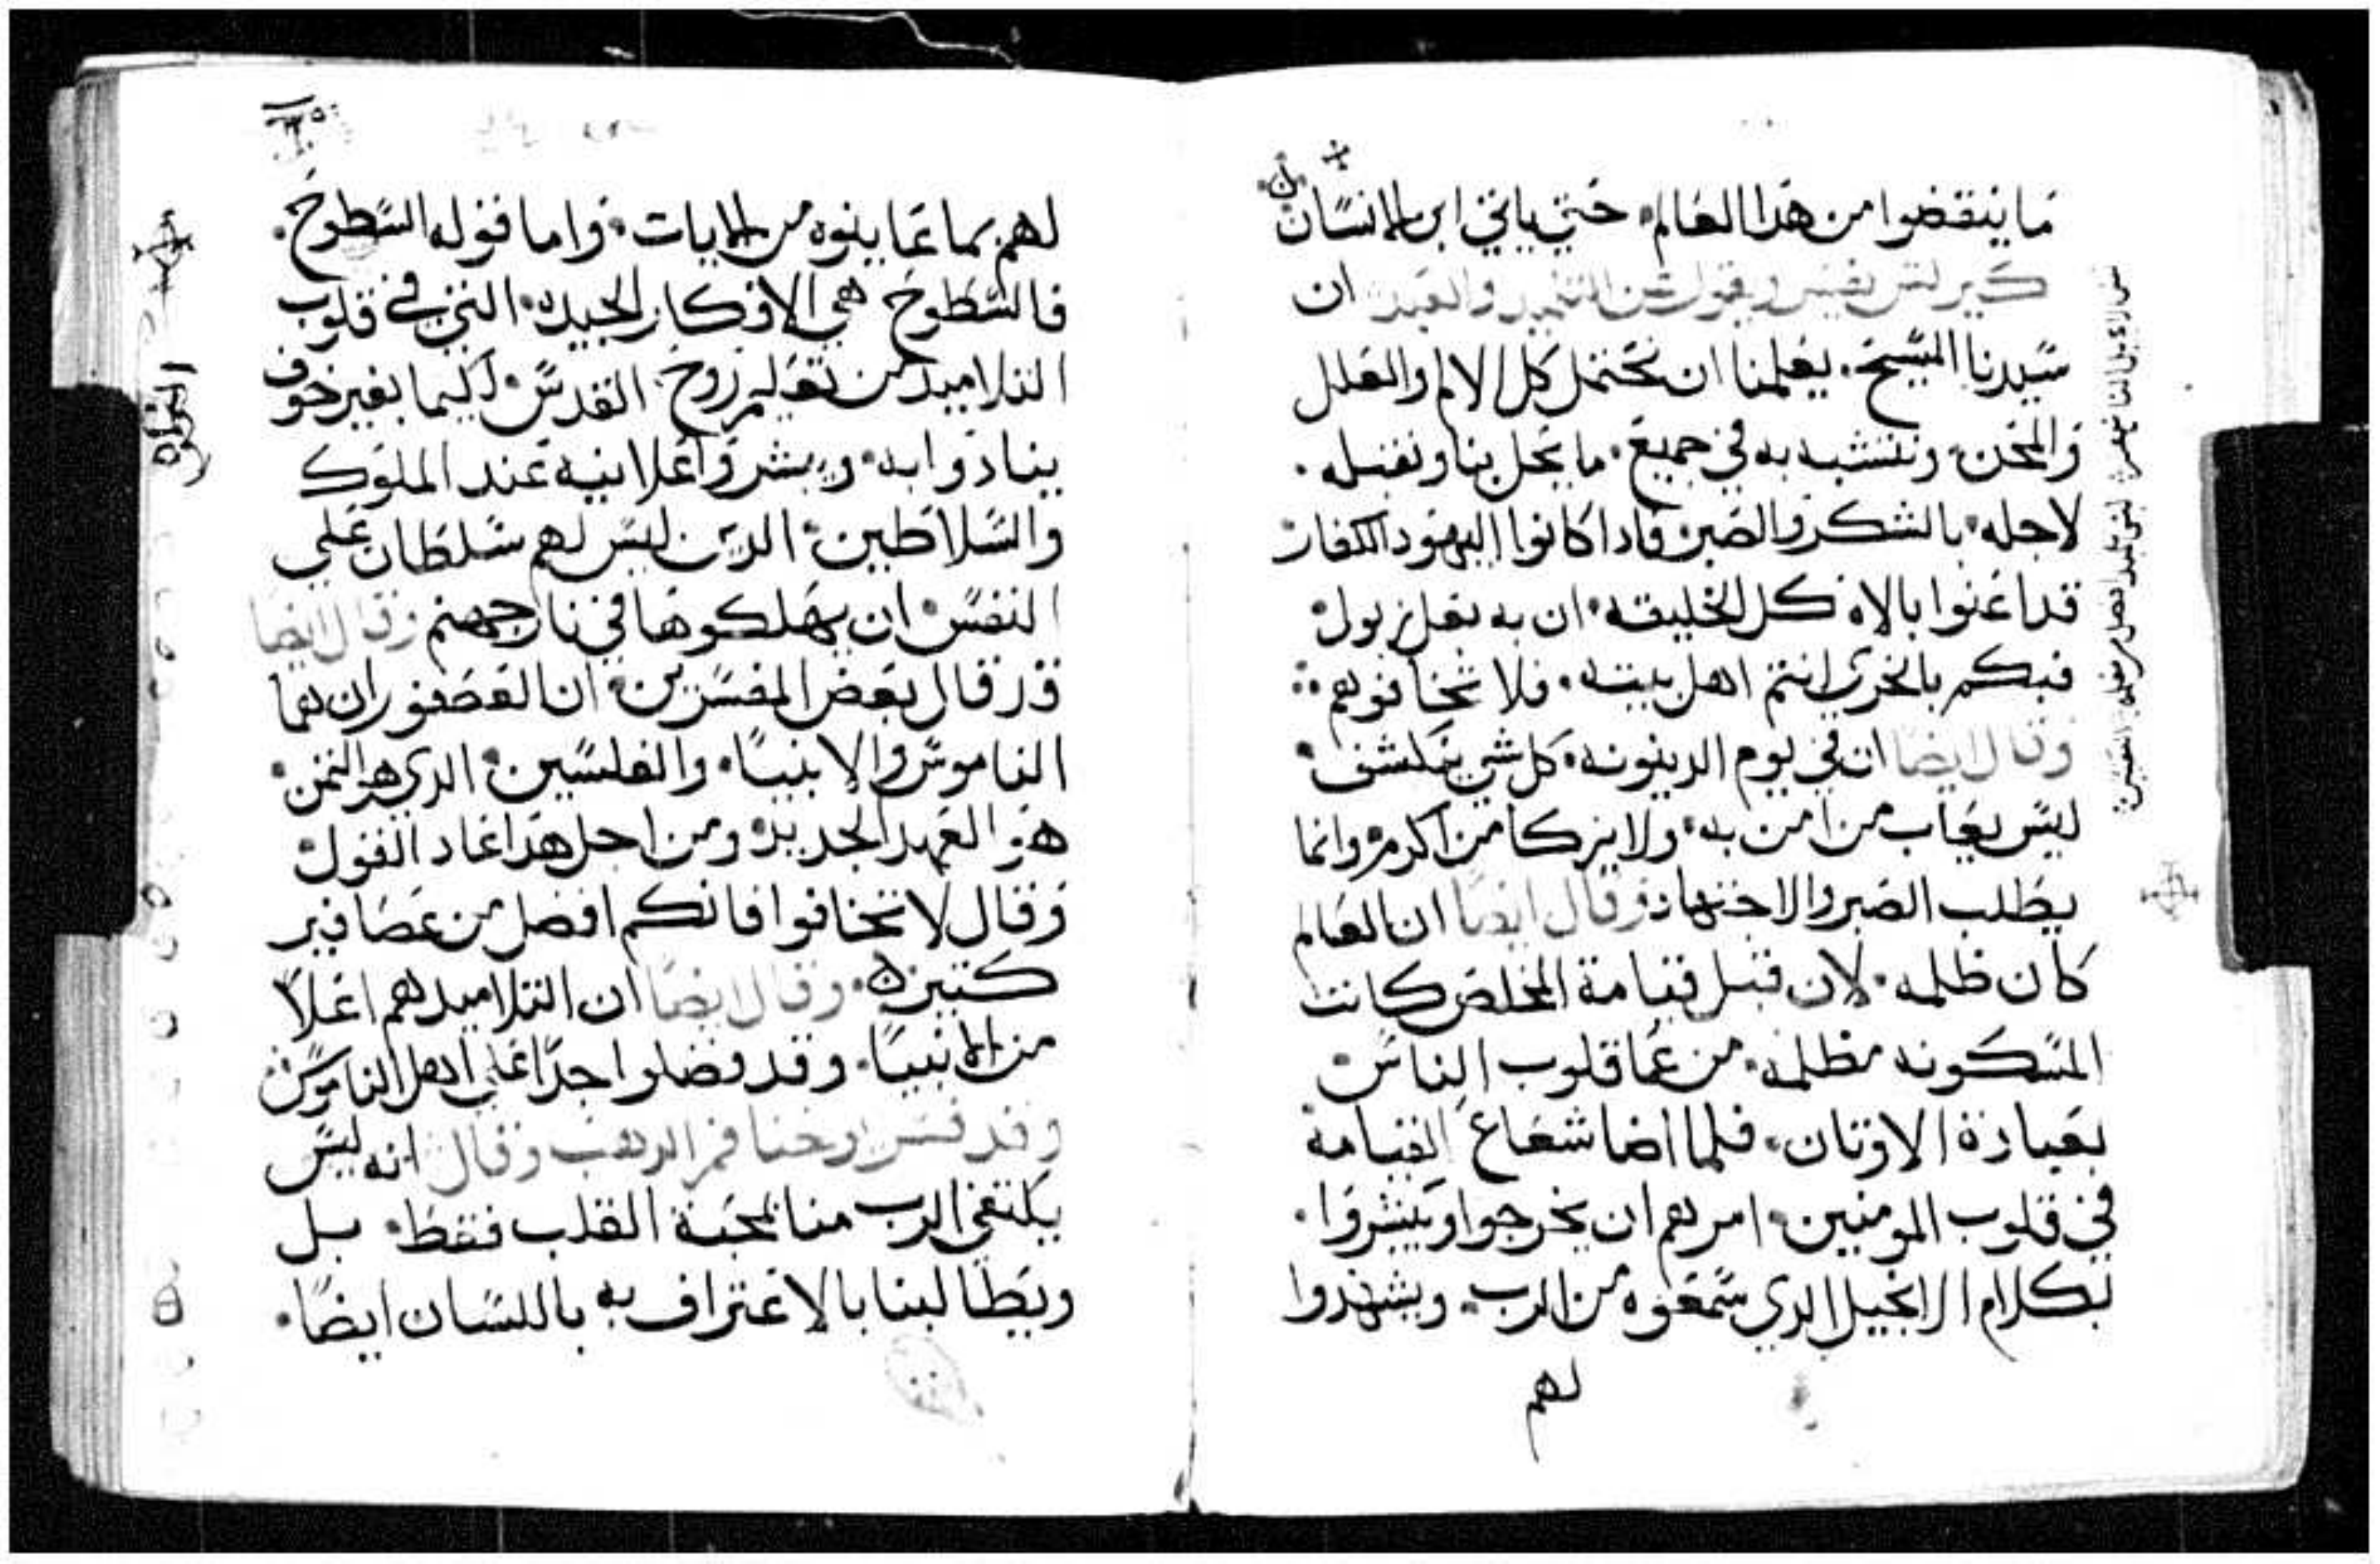 ما ينقضوا من هدا العالم. حتي ياتي ابن الانسان
كيرلس يفسر ويقول عن التلميد والعبد ان
سيدنا المسيح. يعلمنا ان نحتمل كل الالم والعلل
والمحن. ونتشبه به في جميع. ما يحل بنا ونقبله.
لاجله. بالشكر والصبر فادا كانوا اليهود الكفار
قد اعنوا بالاه كل الخليقه. ان به بعلزبول
فبكم بالحري انتم اهل بيته. فلا تخافوهم
وقال ايضا ان في يوم الدينونه. كل شي ينكشف.
ليس يعاب من امن به. ولا يزكا من اكرم وانما
يطلب الصبر والاجتهاد وقال ايضا ان العالم
كان ظلمه. لان قبل قيامة المخلص كانت
المسكونه مظلمه. من عما قلوب الناس
بعبادة الاوتان. فلما اضا شعاع القيامة
في قلوب المومنين. امرهم ان يخرجوا ويبشروا.
بكلام الانجيل الدي سمعوه من الرب. ويشهدوا
لهم
لهم بما عاينوه من الايات. واما قوله السطوح.
فالسطوح هي الافكار الجيده. التي في قلوب
التلاميد من تعليم روح القدس. لكيما بغير خوف
ينادوا به. ويبشروا علانيه عند الملوك
والسلاطين. الدين ليس لهم سلطان علي
النفس. ان يهلكوها في نار جهنم وقال ايضا
قد قال بعض المفسرين. ان العصفوران هما
الناموس والانبيا. والفلسين. الدي هو التمن.
هو العهد الجديد. ومن اجل هدا عاد القول
وقال لا تخافوا فانكم افضل من عصافير
كتيره. وقال ايضا ان التلاميد هم اعلا
من الانبيا. وقد فضلوا جدا علي اهل الناموس
وقد فسر يوحنا فم الدهب وقال انه ليس
يكتفي الرب منا بمحبة القلب فقط. بل
ويطالبنا بالاعتراف به باللسان ايضا.